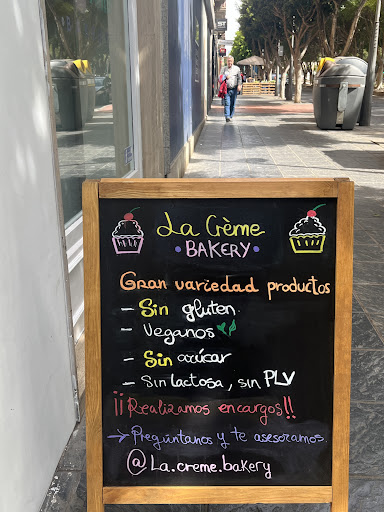 La Crème
• BAKERY •
Gran variedad productos
- Sin gluten.
- Veganos
- Sin azúcar
- Sin lactosa, sin PLV
¡¡Realizamos encargos!!
→ Pregúntanos y te asesoramos.
@La.creme.bakery